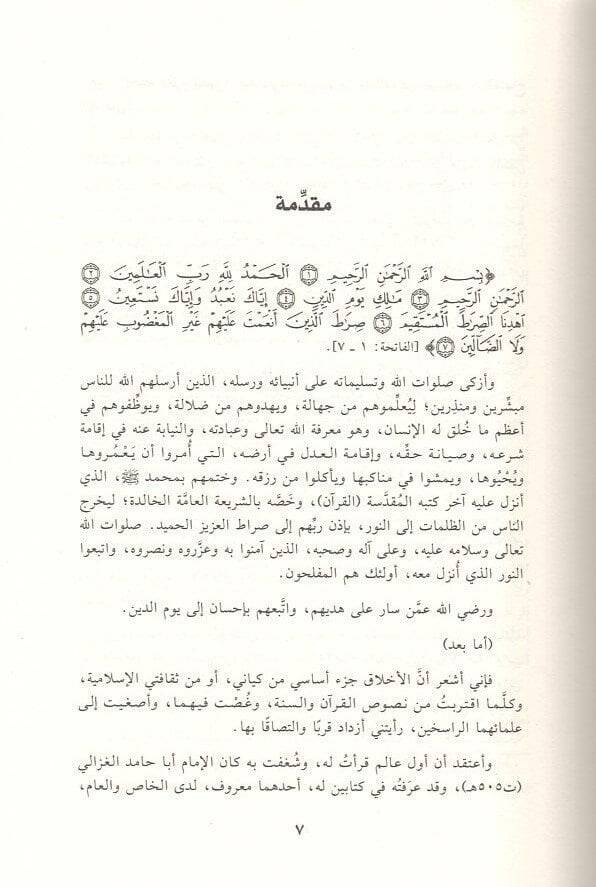 مقدِّمة
﴿بِسْمِ ٱللَّهِ ٱلرَّحْمَٰنِ ٱلرَّحِيمِ ۝١ ٱلْحَمْدُ لِلَّهِ رَبِّ ٱلْعَٰلَمِينَ ۝٢
ٱلرَّحْمَٰنِ ٱلرَّحِيمِ ۝٣ مَٰلِكِ يَوْمِ ٱلدِّينِ ۝٤ إِيَّاكَ نَعْبُدُ وَإِيَّاكَ نَسْتَعِينُ ۝٥
ٱهْدِنَا ٱلصِّرَٰطَ ٱلْمُسْتَقِيمَ ۝٦ صِرَٰطَ ٱلَّذِينَ أَنْعَمْتَ عَلَيْهِمْ غَيْرِ ٱلْمَغْضُوبِ عَلَيْهِمْ
وَلَا ٱلضَّآلِّينَ ۝٧﴾ [الفاتحة: ١ ـ ٧].
وأزكى صلوات الله وتسليماته على أنبيائه ورسله، الذين أرسلهم الله للناس
مبشِّرين ومنذِرين؛ لِيُعلِّموهم من جهالة، ويهدوهم من ضلالة، ويوظِّفوهم في
أعظم ما خُلق له الإنسان، وهو معرفة الله تعالى وعبادته، والنيابة عنه في إقامة
شرعه، وصيانة حقِّه، وإقامة العدل في أرضه، التي أُمروا أن يَعْمُروها
ويُحْيُوها، ويمشوا في مناكبها ويأكلوا من رزقه. وختمهم بمحمد ﷺ، الذي
أنزل عليه آخر كتبه المُقدَّسة (القرآن)، وخَصَّه بالشريعة العامَّة الخالدة؛ ليخرج
الناس من الظلمات إلى النور، بإذن ربِّهم إلى صراط العزيز الحميد. صلوات الله
تعالى وسلامه عليه، وعلى آله وصحبه، الذين آمنوا به وعزَّروه ونصروه، واتبعوا
النور الذي أُنزل معه، أولئك هم المفلحون.
ورضي الله عمَّن سار على هديهم، واتَّبعهم بإحسان إلى يوم الدين.
(أما بعد)
فإني أشعر أنَّ الأخلاق جزء أساسي من كياني، أو من ثقافتي الإسلامية،
وكلَّما اقتربتُ من نصوص القرآن والسنة، وغُصْت فيهما، وأصغيت إلى
علمائهما الراسخين، رأيتني أزداد قربًا والتصاقًا بها.
وأعتقد أن أول عالم قرأتُ له، وشُغفت به كان الإمام أبا حامد الغزالي
(ت٥٠٥هـ)، وقد عرَفتُه في كتابين له، أحدهما معروف، لدى الخاص والعام،
٧